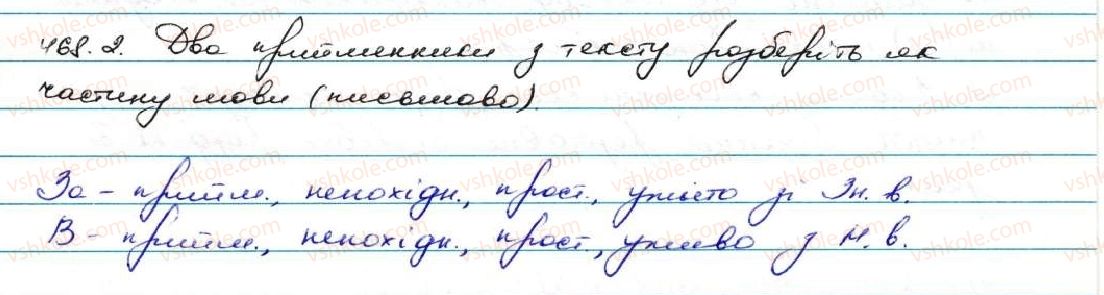 468.2. Два прийменники з тексту розберіть як
частину мови (письмово).
За - прийм., непохідн., прост., ужито зі Зн. в.
В - прийм., непохідн., прост., уживо з М. в.